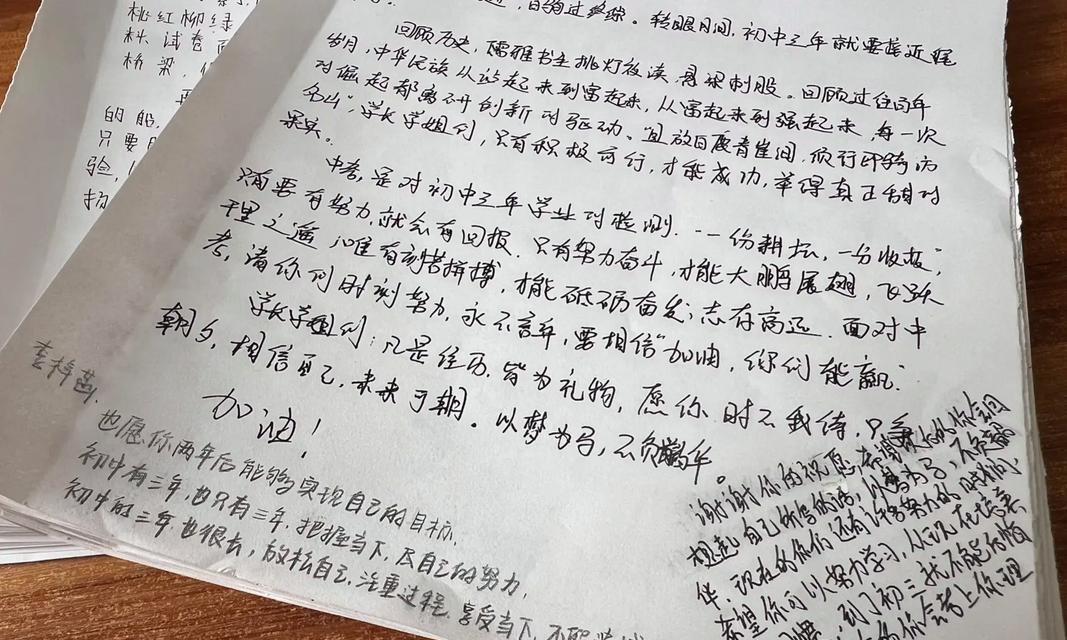 桃红柳绿
试卷
桥梁,
的船,
只要
验,
转眼月间,初中三年就要接近尾
回顾历史,儒雅书生挑灯夜读,悬梁刺股。回顾过往百年
岁月,中华民族从站起来到富起来,从富起来到强起来,每一次
对崛起都离不开创新的驱动。且放白鹿青崖间,须行即骑访
名山”,学长学姐们,只有积极前行,才能成功,举得真正甜的
果实。
中考,是对初中三年学业的检测.“一份耕耘,一份收获,”
只要有努力,就会有回报.只有努力奋斗,才能大鹏展翅,飞跃
千里之遥,唯有刻苦拼搏,才能砥砺奋发;志存高远.面对中
考,请你们时刻努力,永不言弃,要相信“加油,你们能赢.”
学长学姐们:凡是经历,皆为礼物,愿你时不我待,只争
朝夕,相信自己,未来可期。以梦为马,不负韶华。
加油!
李梓
也愿你两年后能够实现自己的目标.
初中有三年,也只有三年,把握当下,尽自己的努力,
初中的三年,也很长,放松自己,注重过程,享受当下,不
谢谢你的祝愿 你会回
想起自己所写的话,以梦为马,不负韶
华.现在的你们还有许多努力的时间,
希望你可以努力学习,从现在培养
到了初三就不能的
你会考上你理